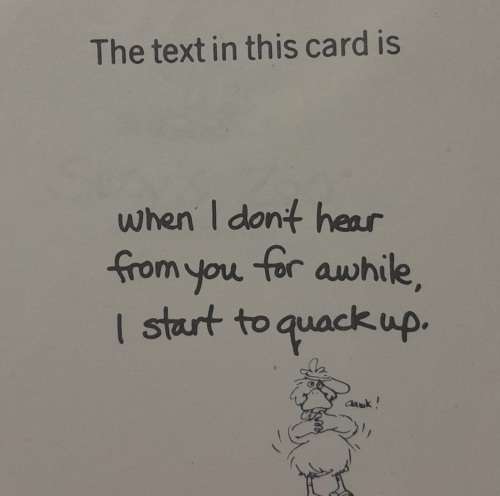 The text in this card is
when I don't hear
from you for awhile,
I start to quack up.